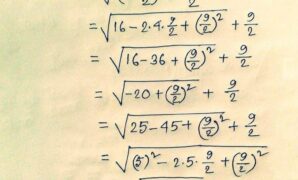 = √(16 - 2.4.9/2 + (9/2)²) + 9/2
= √(16-36 + (9/2)²) + 9/2
= √(-20 + (9/2)²) + 9/2
= √(25-45 + (9/2)²) + 9/2
= √((5)² - 2.5.9/2 + (9/2)²)